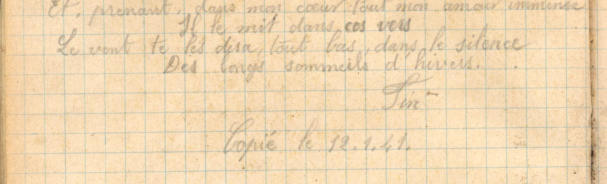 Et, prenant, dans mon cœur tout mon amour immense
Il le mit dans, cos vers
Le vent te les dira, tout bas, dans le silence
Des longs sommeils d'hivers.
Fin
Copié le 12.1.41.